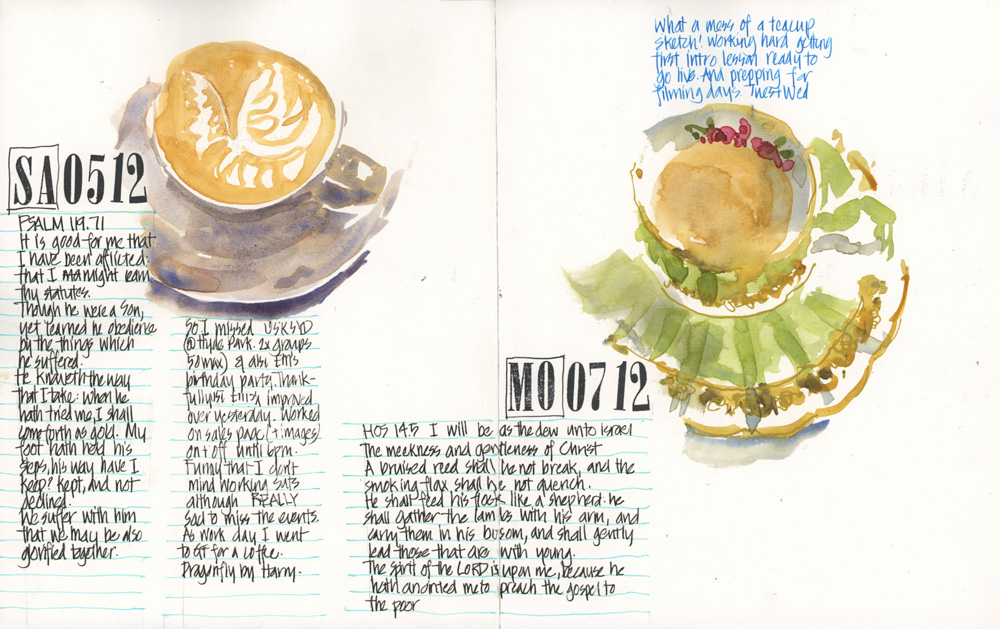 SA 05 12
PSALM 119.71
It is good for me that
I have been afflicted:
that I might learn
thy statutes.
Though he were a Son,
yet learned he obedience
by the things which
he suffered.
He knoweth the way
that I take: when he
hath tried me, I shall
come forth as gold. My
foot hath held his
steps, his way have I
kept, and not
declined.
We suffer with him
that we may be also
glorified together.
So I missed USKSYD
@ Hyde Park. 2x groups
50 max) & also Em's
birthday party. Thank-
fully improved
over yesterday. Worked
on sales page (+ images)
on + off until 6pm.
Funny that I don't
mind working Sats
although REALLY
sad to miss the events.
As work day I went
to GF for a coffee.
Dragonfly by Harry.
What a mess of a teacup
sketch! Working hard getting
first intro lesson ready to
go live. And prepping for
filming days Tues + Wed
MO 07 12
HOS 14.5 I will be as the dew unto Israel
The meekness and gentleness of Christ
A bruised reed shall he not break, and the
smoking flax shall he not quench.
He shall feed his flock like a shepherd: he
shall gather the lambs with his arm, and
carry them in his bosom, and shall gently
lead those that are with young.
The spirit of the LORD is upon me, because he
hath anointed me to preach the gospel to
the poor